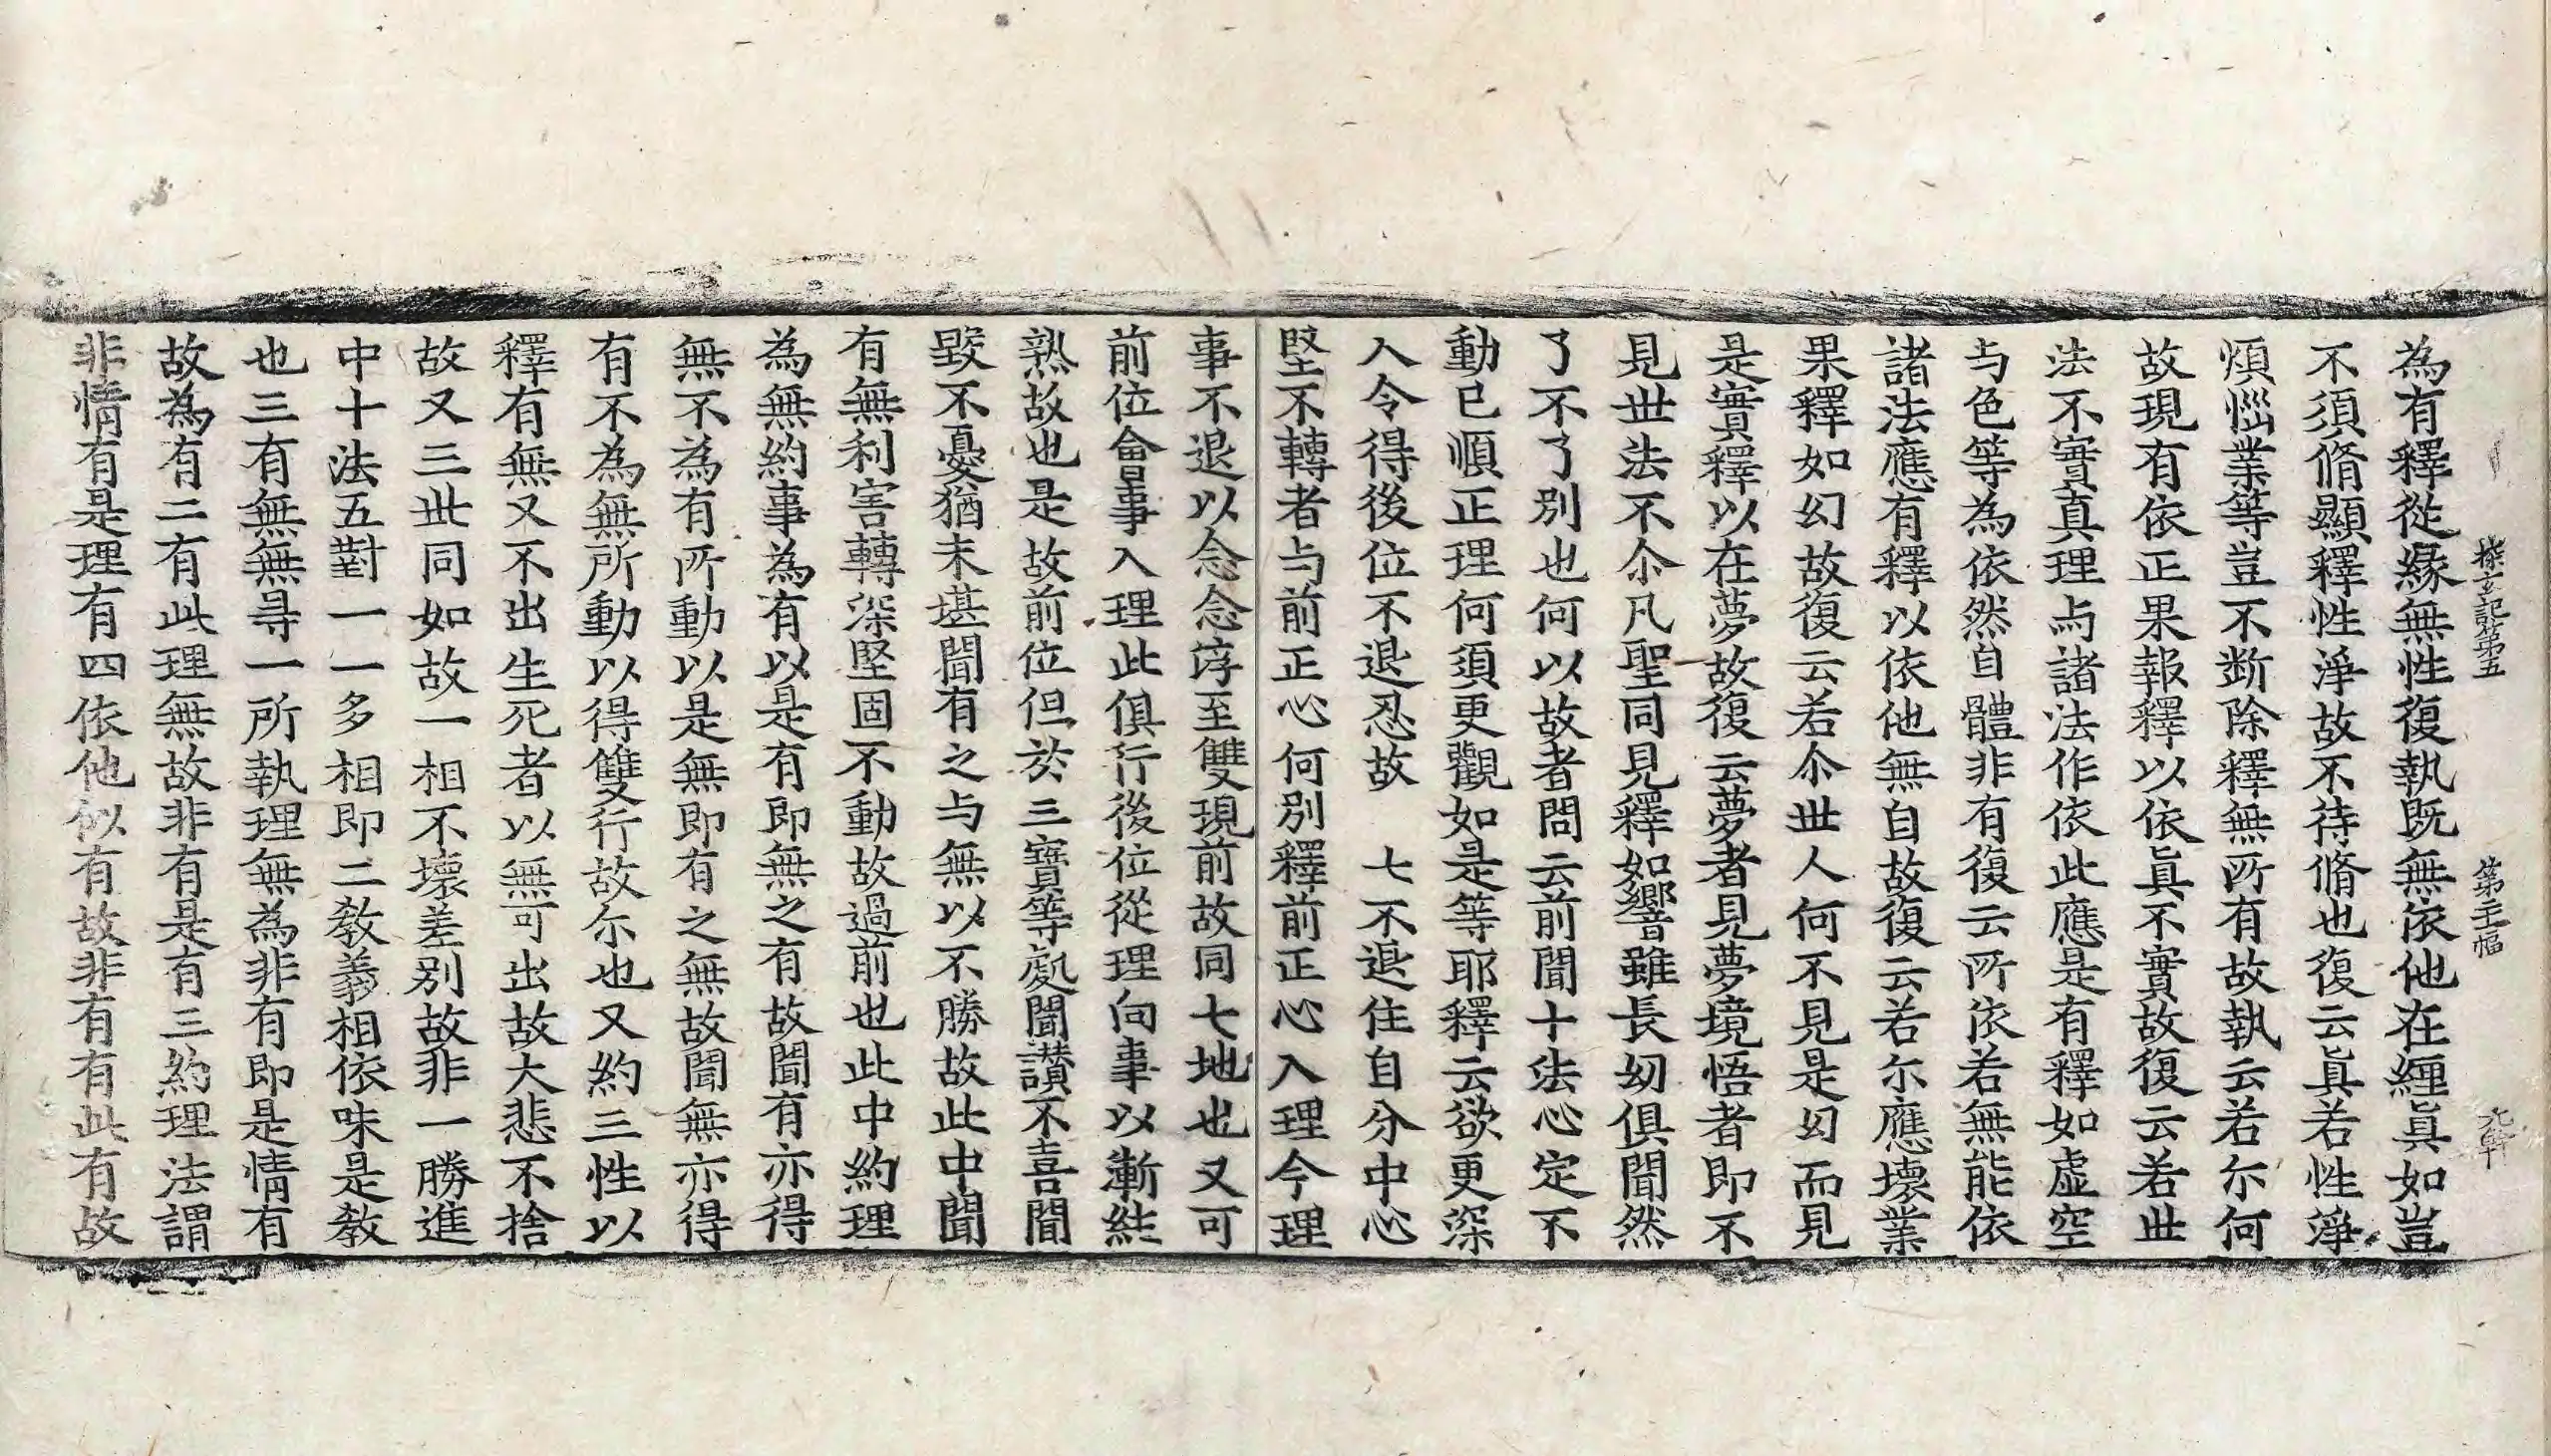 探玄記第五 第三幅
為有釋從緣無性復執既無依他在纏眞如豈
不須脩顯釋性淨故不待脩也復云眞若性淨
煩惱業等豈不断除釋無所有故執云若尓何
故現有依正果報釋以依眞不實故復云若世
法不實真理与諸法作依此應是有釋如虛空
与色等為依然自體非有復云所依若無能依
諸法應有釋以依他無自故復云若尓應壞業
果釋如幻故復云若尒世人何不見是幻而見
是實釋以在夢故復云夢者見夢境悟者即不
見世法不尒凡聖同見釋如響雖長幼俱聞然
了不了別也何以故者問云前聞十法心定不
動已順正理何須更觀如是等耶釋云欲更深
入令得後位不退忍故 七不退住自分中心
堅不轉者与前正心何別釋前正心入理今理
事不退以念念渟至雙現前故同七地也又可
前位會事入理此俱行後位從理向事以漸純
熟故也是故前位但於三寶等處聞讃不喜聞
毀不憂猶未堪聞有之与無以不勝故此中聞
有無利害轉深堅固不動故過前也此中約理
為無約事為有以是有即無之有故聞有亦得
無不為有所動以是無即有之無故聞無亦得
有不為無所動以得雙行故尓也又約三性以
釋有無又不出生死者以無可出故大悲不捨
故又三世同如故一相不壞差别故非一勝進
中十法五對一一多相即二教義相依味是教
也三有無無㝵一所執理無為非有即是情有
故為有二有此理無故非有是有三約理法謂
非情有是理有四依他似有故非有有此有故